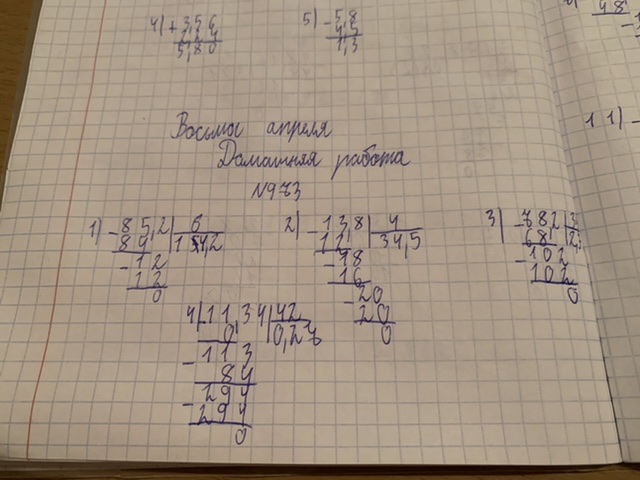 4) + 3,5 6
5) - 5,8
5,8 0
1,3
Восьмое апреля
Домашняя работа
N973
1) - 8 5, 2 | 6
8 4
- 1 2
1 2
0
2) - 1 3 8 | 4
1 2 | 3 4, 5
- 1 8
1 6
- 2 0
2 0
0
3) - 7 8 2
6 8
- 1 0 2
1 0 2
0
4) - 1 1, 3 4 | 42
0 | 0, 2 7
- 1 1 3
8 4
- 2 9 4
2 9 4
0
1 1) -